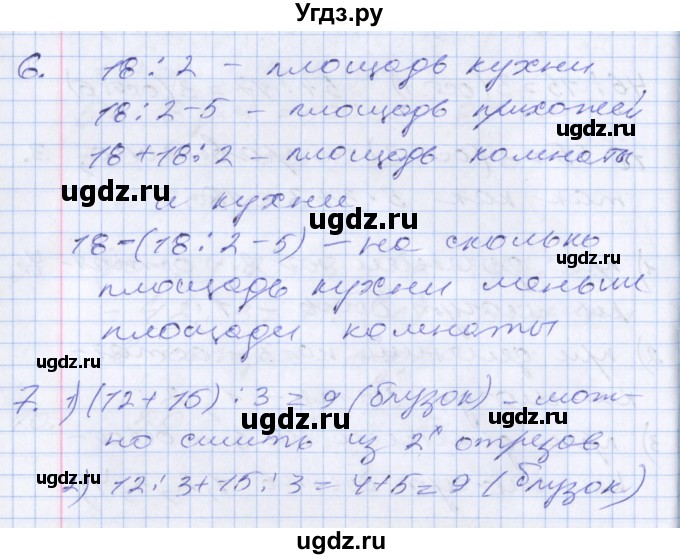 Угдз.ру
6. 18 : 2 – площадь кухни
18 : 2 – 5 – площадь прихожей
ugdz.ru
18 + 18 : 2 – площадь комнаты
ugdz.ru
и кухни
ugdz.ru
18 – (18 : 2 – 5) – на сколько
ugdz.ru
площадь кухни меньш
площади комнаты
ugdz.ru
7. 1) (12 + 15) : 3 = 9 (блузок) – мож-
ugdz.ru
но сшить из 2х отрезов
ugdz.ru
ugdz.ru
2) 12 : 3 + 15 : 3 = 4 + 5 = 9 (блузок)
ugdz.ru